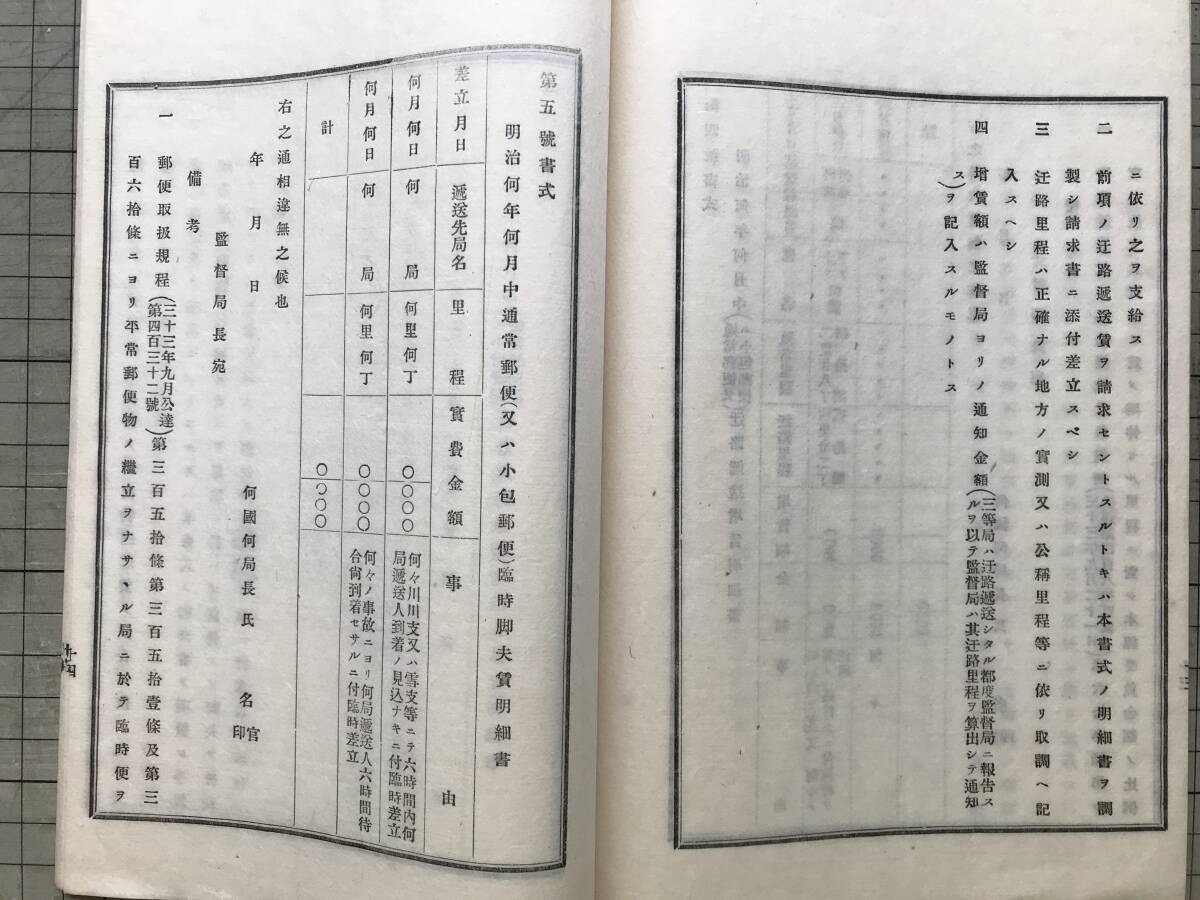 ニ依リ之ヲ支給ス
二 前項ノ迂路遞送賃ヲ請求セントスルトキハ本書式ノ明細書ヲ調
製シ請求書ニ添付差立スベシ
三 迂路里程ハ正確ナル地方ノ實測又ハ公稱里程等ニ依リ取調ヘ記
入スヘシ
四 増賃額ハ監督局ヨリノ通知金額(三等局ハ迂路遞送シタル都度監督局ニ報告ス
ルヲ以テ監督局ハ其迂路里程ヲ算出シテ通知
ス)ヲ記入スルモノトス
第五號書式
明治何年何月中通常郵便(又ハ小包郵便)臨時脚夫賃明細書
差立月日 遞送先局名 里程 實費金額 事由
何月何日 何局 何里何丁 〇〇〇〇 何々川川支又ハ雪支等ニテ六時間內何
局遞送人到着ノ見込ナキニ付臨時差立
何月何日 何局 何里何丁 〇〇〇〇 何々ノ事故ニヨリ何局遞送人六時間待
合尙到着セサルニ付臨時差立
計 〇〇〇〇
右之通相違無之候也
年月日 何國何局長氏名官印
監督局長宛
備考
一 郵便取扱規程(三十三年九月公達
第四百三十二號)第三百五拾條第三百五拾壹條及第三
百六拾條ニヨリ平常郵便物ノ繼立ヲナサヽル局ニ於テ臨時便ヲ
十四